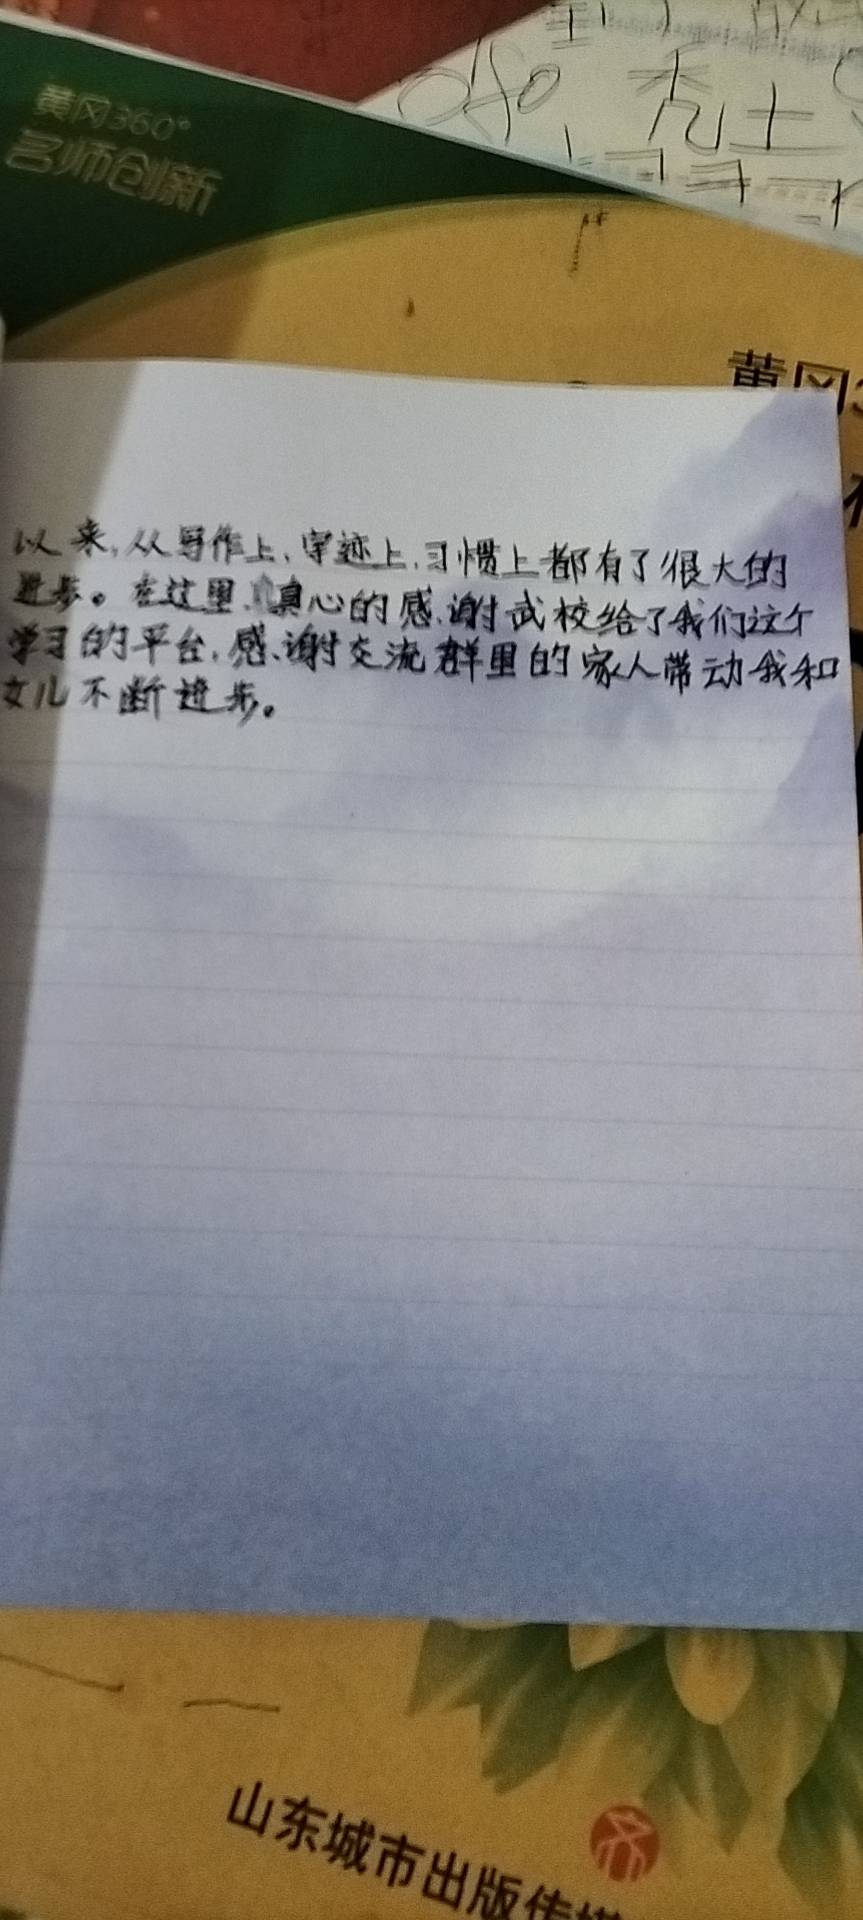 黄冈360°
名师创新
080 秃土
黄冈3
以来,从写作上,字迹上,习惯上都有了很大的
进步。在这里,真心的感谢武校给了我们这个
学习的平台,感谢交流群里的家人带动我和
女儿不断进步。
山东城市出版传媒